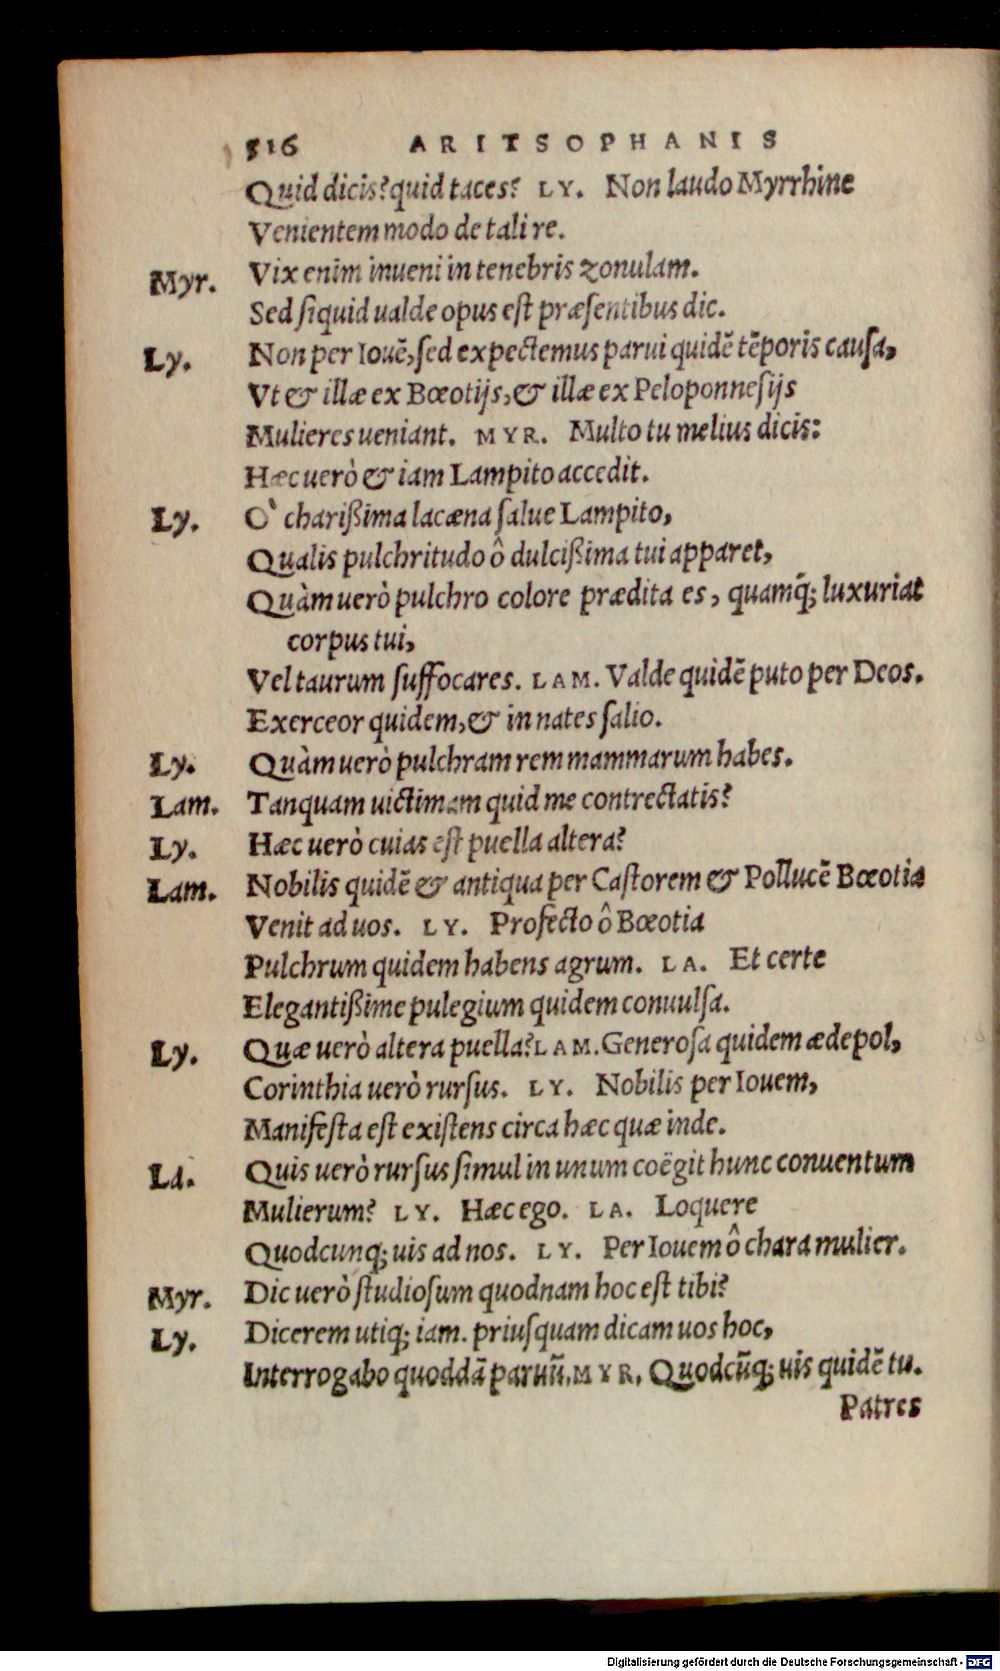 516 ARITSOPHANIS
Quid dicis? quid taces? LY. Non laudo Myrrhine
Venientem modo de tali re.
Myr. Vix enim inueni in tenebris zonulam.
Sed siquid ualde opus est præsentibus dic.
Ly. Non per Iouē, sed expectemus parui quidē tēporis causa,
Vt & illæ ex Bœotijs, & illæ ex Peloponnesijs
Mulieres ueniant. MYR. Multo tu melius dicis:
Hæc uerò & iam Lampito accedit.
Ly. O` charißima lacæna salue Lampito,
Qualis pulchritudo ô dulcißima tui apparet,
Quàm uerò pulchro colore prædita es, quamq́; luxuriat
corpus tui,
Vel taurum suffocares. LAM. Valde quidē puto per Deos.
Exerceor quidem, & in nates salio.
Ly. Quàm uerò pulchram rem mammarum habes.
Lam. Tanquam uictimam quid me contrectatis?
Ly. Hæc uerò cuias est puella altera?
Lam. Nobilis quidē & antiqua per Castorem & Pollucē Bœotia
Venit ad uos. LY. Profecto ô Bœotia
Pulchrum quidem habens agrum. LA. Et certe
Elegantißime pulegium quidem conuulsa.
Ly. Quæ uerò altera puella? LAM. Generosa quidem ædepol,
Corinthia uerò rursus. LY. Nobilis per Iouem,
Manifesta est existens circa hæc quæ inde.
La. Quis uerò rursus simul in unum coëgit hunc conuentum
Mulierum? LY. Hæc ego. LA. Loquere
Quodcunq; uis ad nos. LY. Per Iouem ô chara mulier.
Myr. Dic uerò studiosum quodnam hoc est tibi?
Ly. Dicerem utiq; iam. priusquam dicam uos hoc,
Interrogabo quoddā paruū. MYR. Quodcūq; uis quidē tu.
Patres
Digitalisierung gefördert durch die Deutsche Forschungsgemeinschaft - DFG